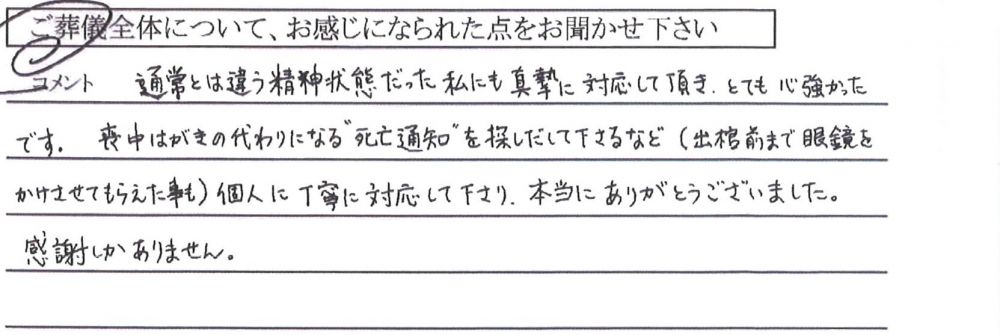 ご葬儀全体について、お感じになられた点をお聞かせ下さい
コメント 通常とは違う精神状態だった私にも真摯に対応して頂き、とても心強かった
です。喪中はがきの代わりになる"死亡通知"を探しだして下さるなど（出棺前まで眼鏡を
かけさせてもらえた事も）個人に丁寧に対応して下さり、本当にありがとうございました。
感謝しかありません。